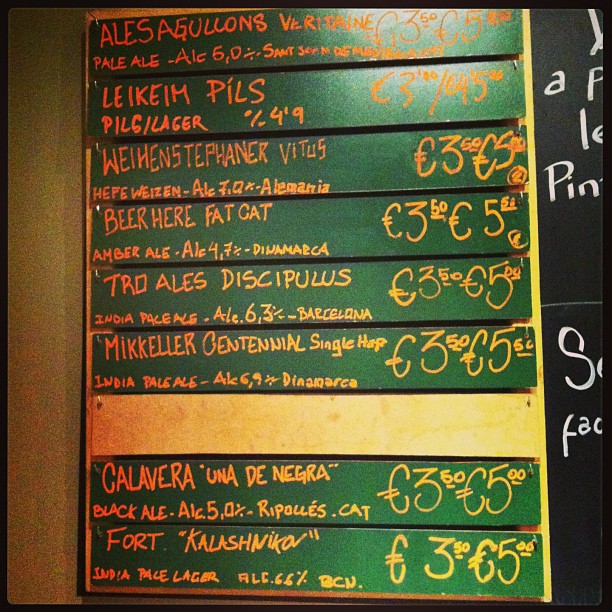 ALES AGULLONS VERITAINE €3'50 €5
PALE ALE - Alc 5,0%
LEIKEIM PILS €3'00/€4'5
PILS/LAGER % 4'9
WEIHENSTEPHANER VITUS €3'50 €5'00
HEFEWEIZEN - Alc 7,0% - Alemania
BEER HERE FAT CAT €3'50 €5'50
AMBER ALE - Alc 4,7% - DINAMARCA
TRO ALES DISCIPULUS €3'50 €5'00
INDIA PALE ALE - Alc. 6,3% - BARCELONA
MIKKELLER CENTENNIAL Single Hop €3'50 €5'50
INDIA PALE ALE - Alc 6,9% Dinamarca
CALAVERA "UNA DE NEGRA" €3'50 €5'00
BLACK ALE - Alc. 5,0% - RIPOLLÉS. CAT
FORT "KALASHNIKOV" €3'50 €5'00
INDIA PALE LAGER ALC. 6.6% BCN.
a P
le
Pin
Se
fac